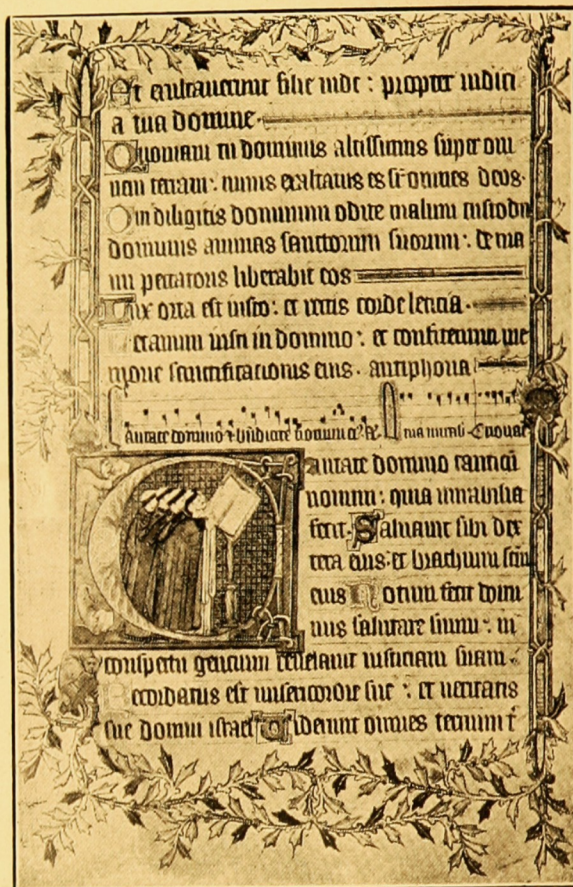 Et exultauerunt filie iude : propter iudici
a tua domine
Quoniam tu dominus altissimus super om
nem terram : nimis exaltatus es sr̄ omnes deos .
Qui diligitis dominum odite malum custodit
dominus animas sanctorum suorum : de ma
nu peccatoris liberabit eos
Lux orta est iusto : et rectis corde leticia .
Letamini iusti in domino : et confitemini me
morie sanctificacionis eius . antiphona
Cantate domino Euouae
Cantate domino canticū
nouum : quia mirabilia
fecit . Saluauit sibi dex
tera eius : et brachium scm̄
eius Notum fecit domi
nus salutare suum : in
conspectu gencium reuelauit iusticiam suam .
Recordatus est misericordie sue : et ueritatis
sue domui israel Uiderunt omnes termini